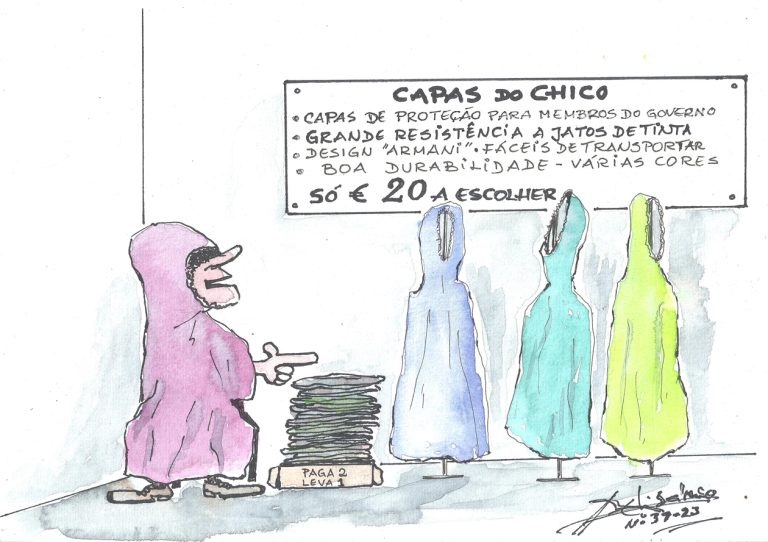 CAPAS DO CHICO
• CAPAS DE PROTEÇÃO PARA MEMBROS DO GOVERNO
• GRANDE RESISTÊNCIA A JATOS DE TINTA
• DESIGN "ARMANI". FÁCEIS DE TRANSPORTAR
• BOA DURABILIDADE - VÁRIAS CORES
SÓ € 20 A ESCOLHER
PAGA 2
LEVA 1
Nº 39-23